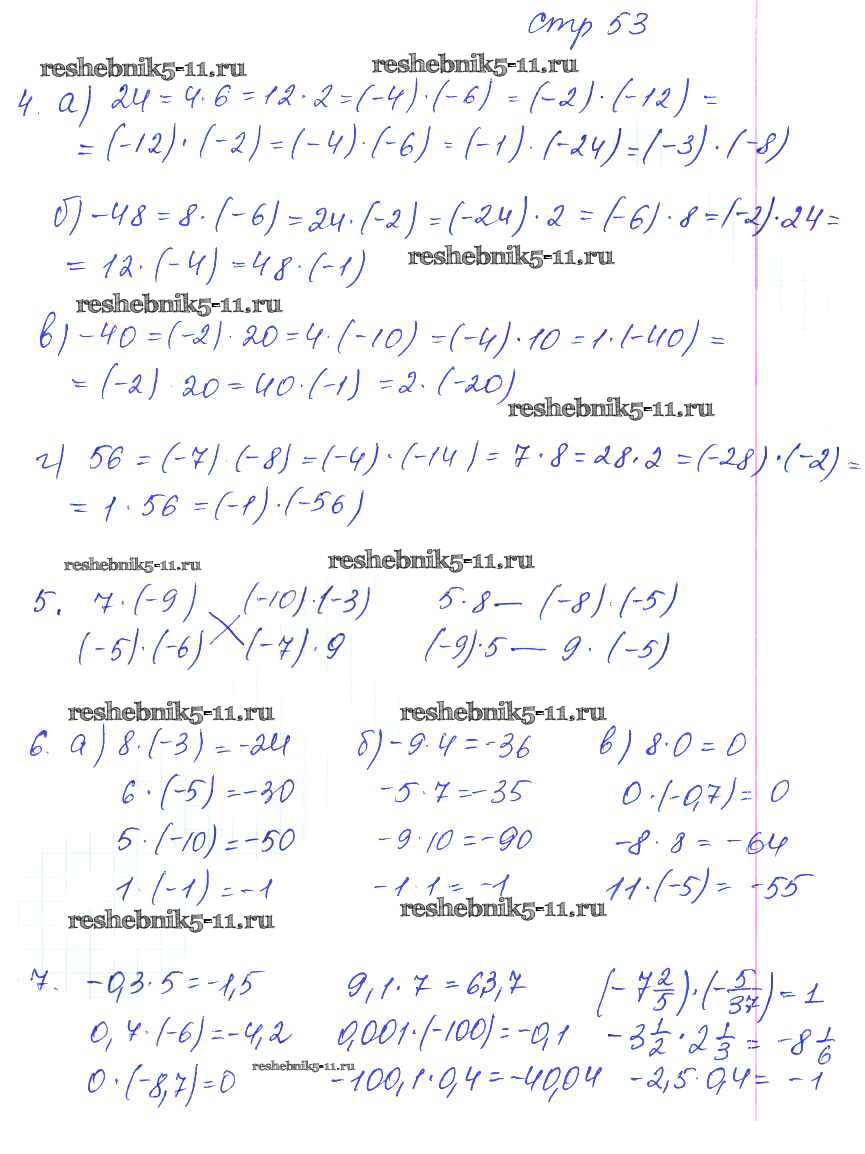 стр 53
reshebnik5-11.ru reshebnik5-11.ru
4. а) 24 = 4·6 = 12·2 = (-4)·(-6) = (-2)·(-12) =
= (-12)·(-2) = (-4)·(-6) = (-1)·(-24) = (-3)·(-8)
б) -48 = 8·(-6) = 24·(-2) = (-24)·2 = (-6)·8 = (-2)·24 =
= 12·(-4) = 48·(-1) reshebnik5-11.ru
reshebnik5-11.ru
в) -40 = (-2)·20 = 4·(-10) = (-4)·10 = 1·(-40) =
= (-2)·20 = 40·(-1) = 2·(-20)
reshebnik5-11.ru
г) 56 = (-7)·(-8) = (-4)·(-14) = 7·8 = 28·2 = (-28)·(-2) =
= 1·56 = (-1)·(-56)
reshebnik5-11.ru reshebnik5-11.ru
5. 7·(-9) (-10)·(-3) 5·8 — (-8)·(-5)
(-5)·(-6) (-7)·9 (-9)·5 — 9·(-5)
reshebnik5-11.ru reshebnik5-11.ru
6. а) 8·(-3) = -24 б) -9·4 = -36 в) 8·0 = 0
6·(-5) = -30 -5·7 = -35 0·(-0,7) = 0
5·(-10) = -50 -9·10 = -90 -8·8 = -64
1·(-1) = -1 -1·1 = -1 11·(-5) = -55
reshebnik5-11.ru reshebnik5-11.ru
7. -0,3·5 = -1,5 9,1·7 = 63,7 (-7 2/5)·(-5/37) = 1
0,7·(-6) = -4,2 0,001·(-100) = -0,1 -3 1/2·2 1/3 = -8 1/6
0·(-8,7) = 0 reshebnik5-11.ru -100,1·0,4 = -40,04 -2,5·0,4 = -1